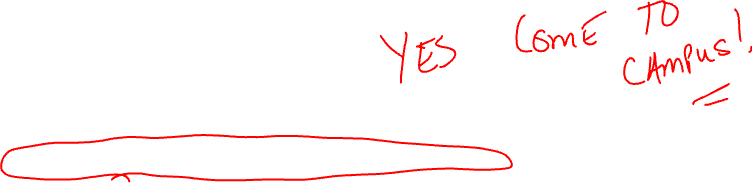 YES COME TO
CAMPUS!